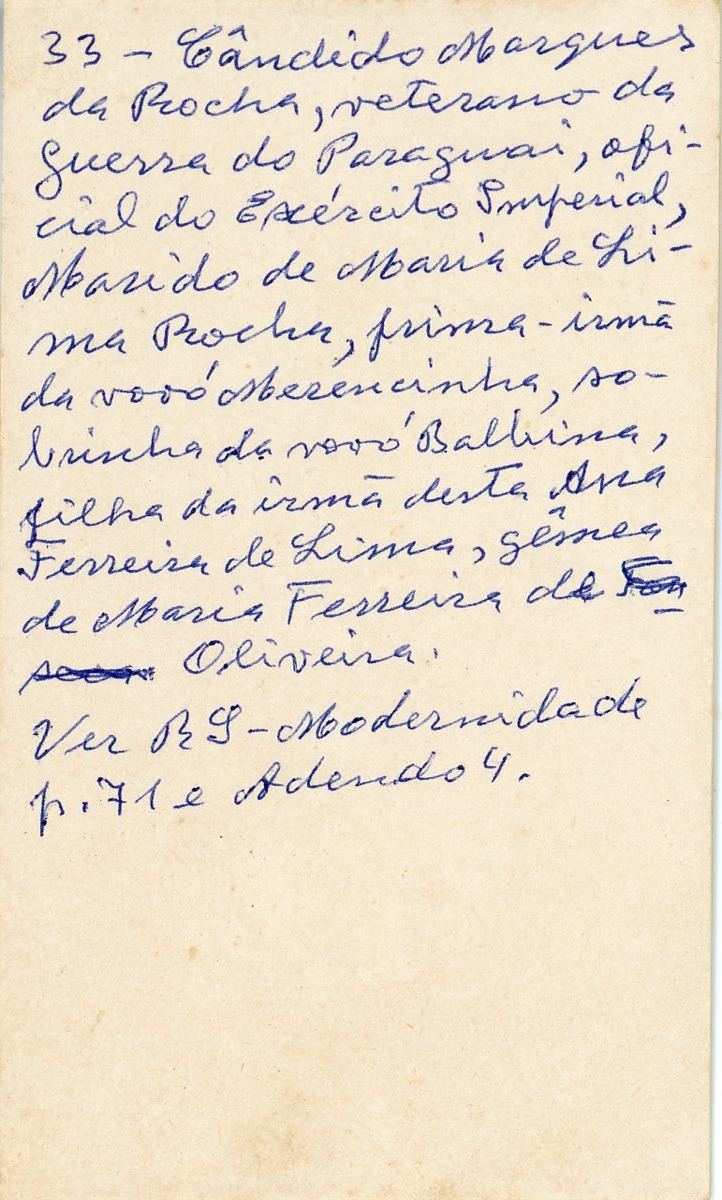 33 - Cândido Marques
da Rocha, veterano da
guerra do Paraguai, ofi-
cial do Exército Imperial,
Marido de Maria de Li-
ma Rocha, prima-irmã
da vovó Merencinha, so-
brinha da vovó Balbina,
filha da irmã desta Ana
Ferreira de Lima, gêmea
de Maria Ferreira de Fon
seca. Oliveira.
Ver RS - Modernidade
p. 71 e Adendo 4.